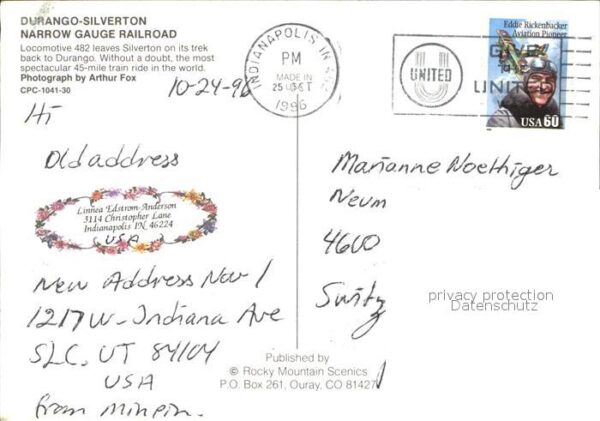 DURANGO-SILVERTON
NARROW GAUGE RAILROAD
Locomotive 482 leaves Silverton on its trek
back to Durango. Without a doubt, the most
spectacular 45-mile train ride in the world.
Photograph by Arthur Fox
CPC-1041-30
10-24-96
Hi
Old address
Linnea Edstrom-Anderson
3114 Christopher Lane
Indianapolis IN 46224
USA
New Address Nov 1
1217 W-Indiana Ave
SLC, UT 84104
USA
from
INDIANAPOLIS IN
PM
MADE IN
25 OCT
1996
UNITED
GIVE
UNITED
Eddie Rickenbacker
Aviation Pioneer
USA 60
Marianne Noethiger
Neum
4600
Switz
privacy protection
Datenschutz
Published by
© Rocky Mountain Scenics
P.O. Box 261, Ouray, CO 81427